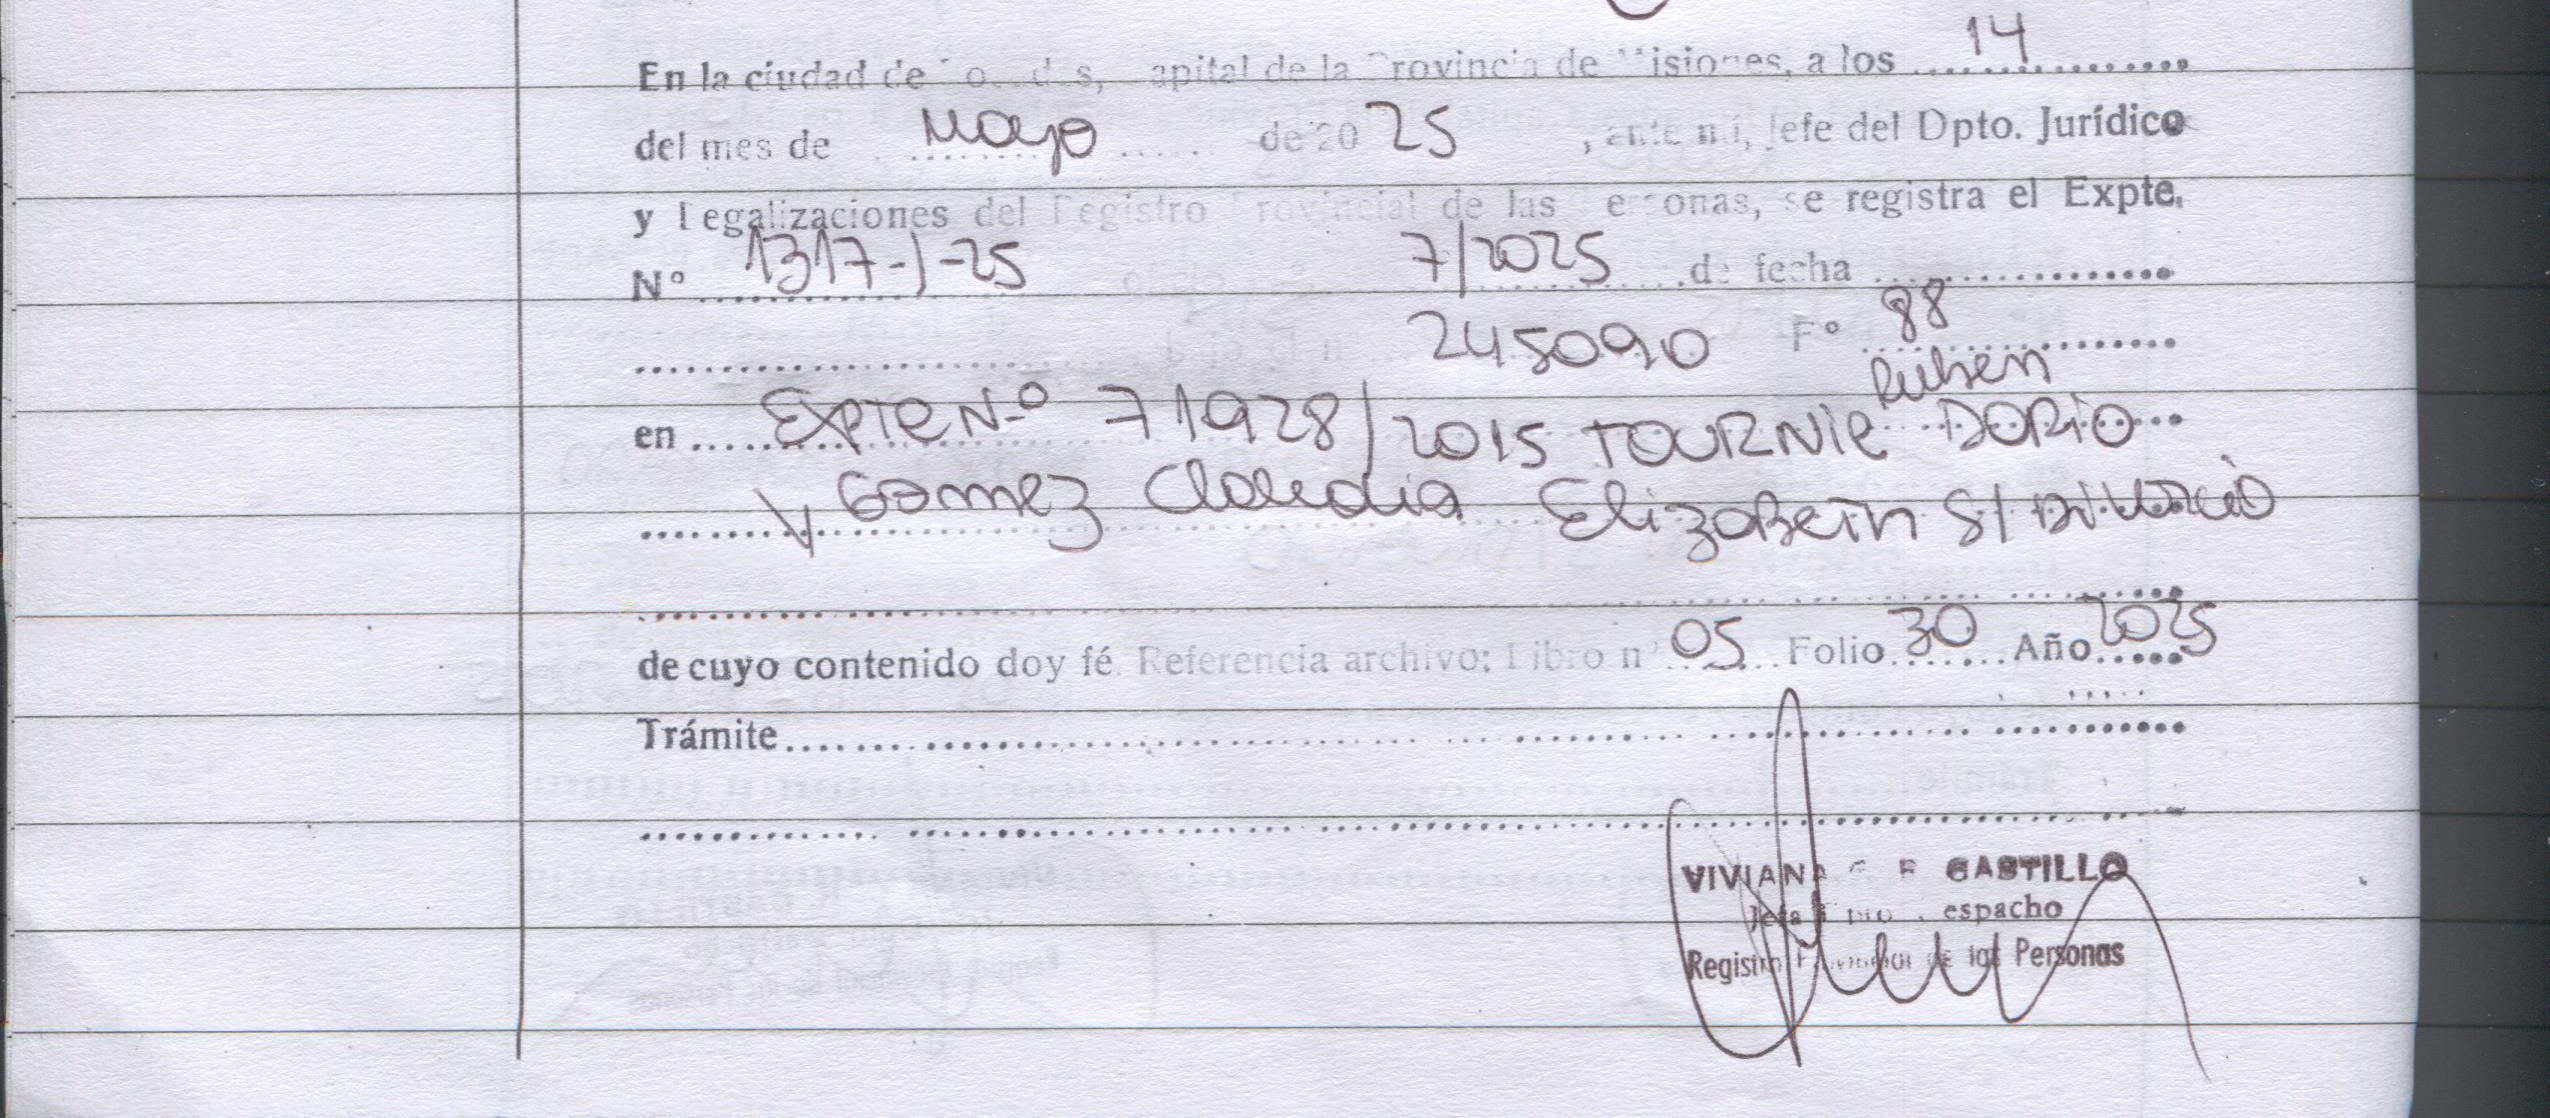 En la ciudad de Posadas, Capital de la Provincia de Misiones, a los 14
del mes de Mayo de 20 25 , ante mí, Jefe del Dpto. Jurídico
y Legalizaciones del Registro Provincial de las Personas, se registra el Expte.
Nº 1317-J-25 7/2025 de fecha
245090 Fº 88
Ruben
en Expte Nº 71928/2015 TOURNIE DARIO
V Gomez Claudia Elizabeth S/ Divorcio
de cuyo contenido doy fé. Referencia archivo: Libro nº 05 Folio 30 Año 2025
Trámite
VIVIANA CASTILLO
Jefa Dpto. Despacho
Registro Provincial de las Personas